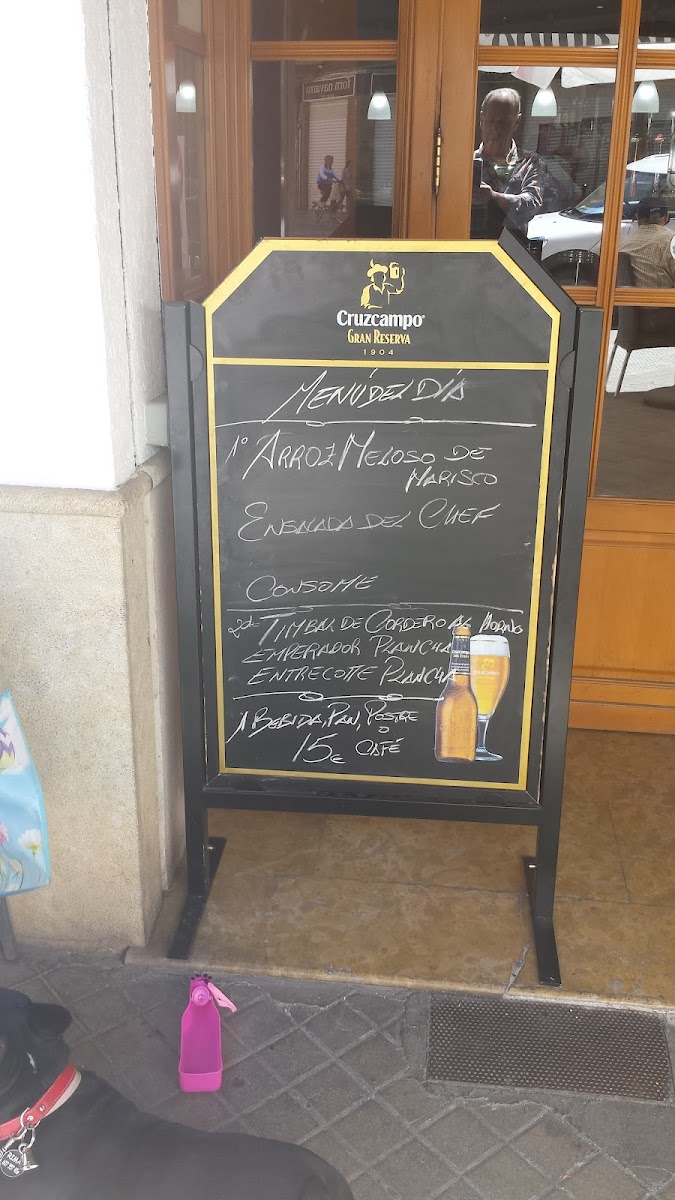 Cruzcampo
GRAN RESERVA
1904
MENÚ DEL DÍA
1º ARROZ MELOSO DE
MARISCO
ENSALADA DEL CHEF
CONSOME
2do TIMBAL DE CORDERO AL HORNO
EMPERADOR PLANCHA
ENTRECOTTE PLANCHA
1 BEBIDA, PAN, POSTRE
O
15€ CAFÉ